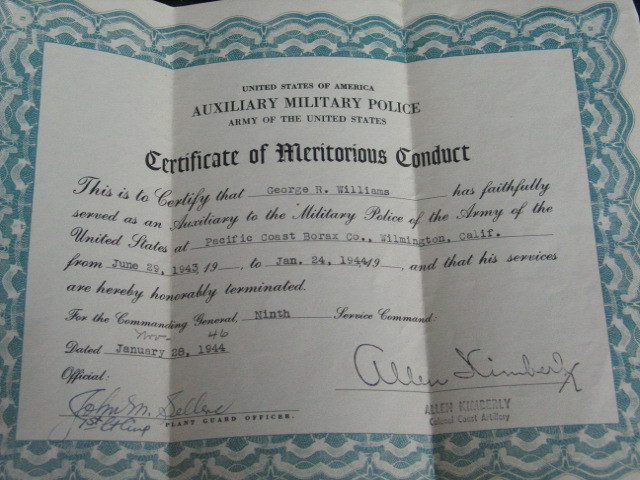 UNITED STATES OF AMERICA
AUXILIARY MILITARY POLICE
ARMY OF THE UNITED STATES
Certificate of Meritorious Conduct
This is to Certify that George R. Williams has faithfully
served as an Auxiliary to the Military Police of the Army of the
United States at Pacific Coast Borax Co., Wilmington, Calif.
from June 29, 1943 19__, to Jan. 24, 1944 19__, and that his services
are hereby honorably terminated.
For the Commanding General, Ninth Service Command:
Nov- 46
Dated January 28, 1944
Official:
Allen Kimberly
John M. Sellers
PLANT GUARD OFFICER.
1st Lt
ALLEN KIMBERLY
Colonel Coast Artillery